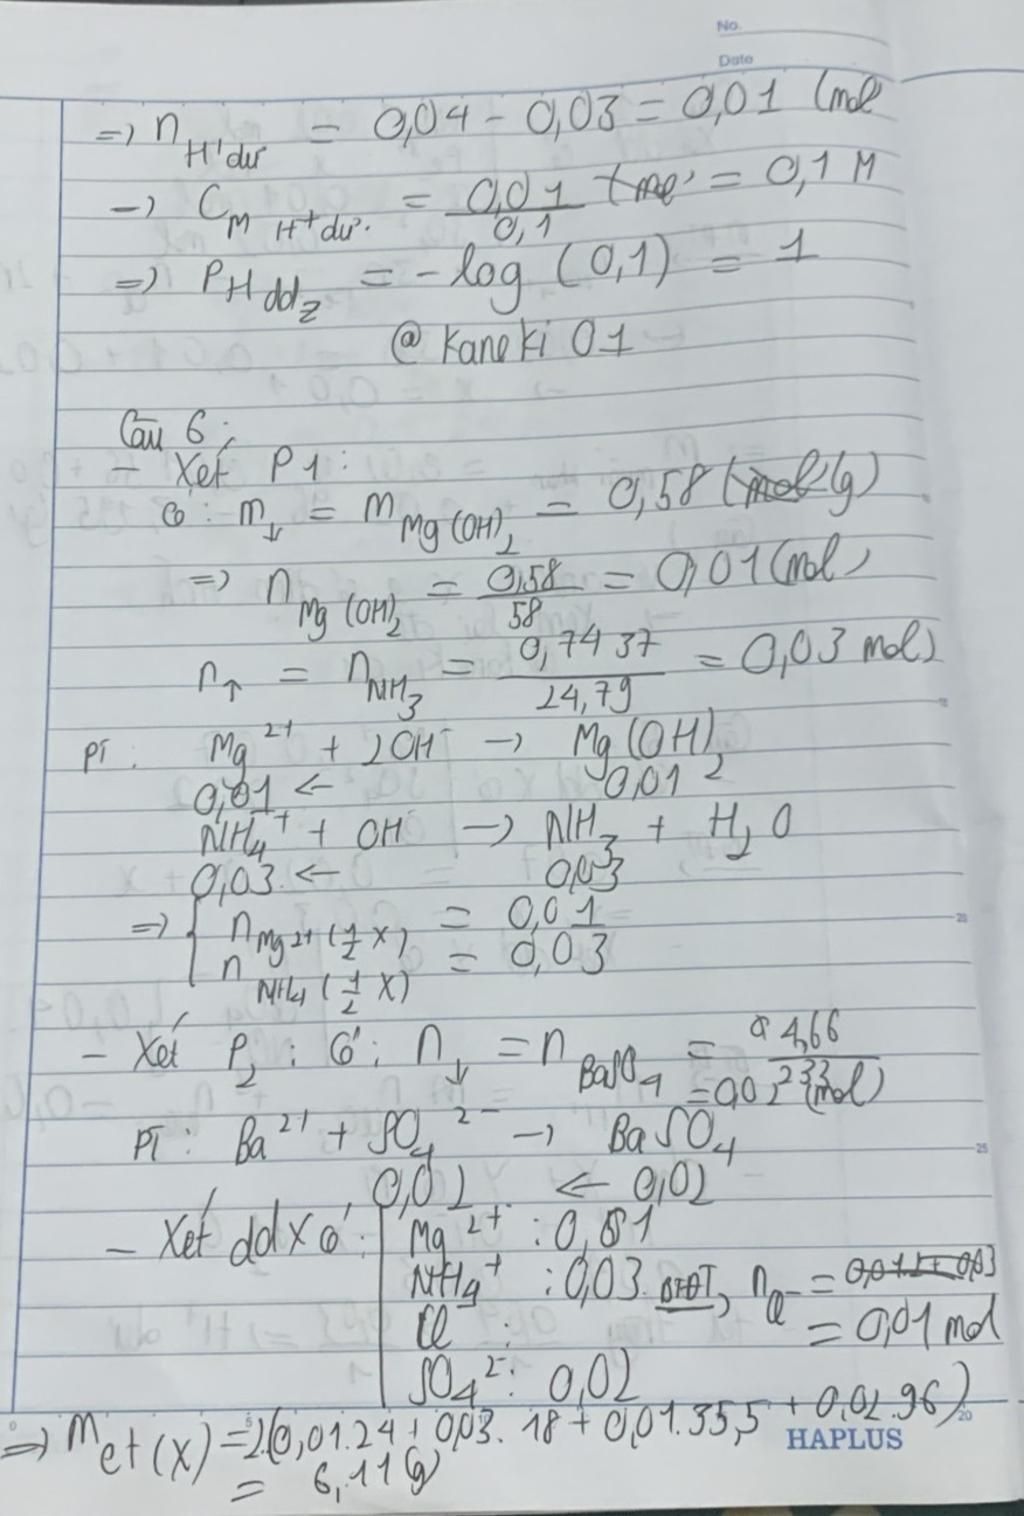 No.
Date
=> n H+ dư = 0,04 - 0,03 = 0,01 (mol
-> C M H+ dư. = 0,01 / 0,1 = 0,1 M
=> PH ddz = - log (0,1) = 1
@ Kaneki 01
Câu 6:
- Xét P1:
Có: m↓ = m Mg(OH)2 = 0,58 (g)
=> n Mg(OH)2 = 0,58 / 58 = 0,01 (mol)
n↑ = n NH3 = 0,7437 / 24,79 = 0,03 mol)
PT: Mg2+ + 2OH- -> Mg(OH)2
0,01 <- 0,01
NH4+ + OH- -> NH3 + H2O
0,03 <- 0,03
=> { n Mg2+ (1/2 X) = 0,01
n NH4 (1/2 X) = 0,03
- Xét P2: Có: n↓ = n BaSO4 = 4,66 / 233
= 0,02 (mol)
PT: Ba2+ + SO4 2- -> BaSO4
0,02 <- 0,02
- Xét dd X có: Mg2+ : 0,01
NH4+ : 0,03 BTĐT, n Cl- =
Cl- : = 0,01 mol
SO4 2-: 0,02
=> m ct (X) = 2.(0,01.24 + 0,03.18 + 0,01.35,5 + 0,02.96)
= 6,11 (g)
HAPLUS